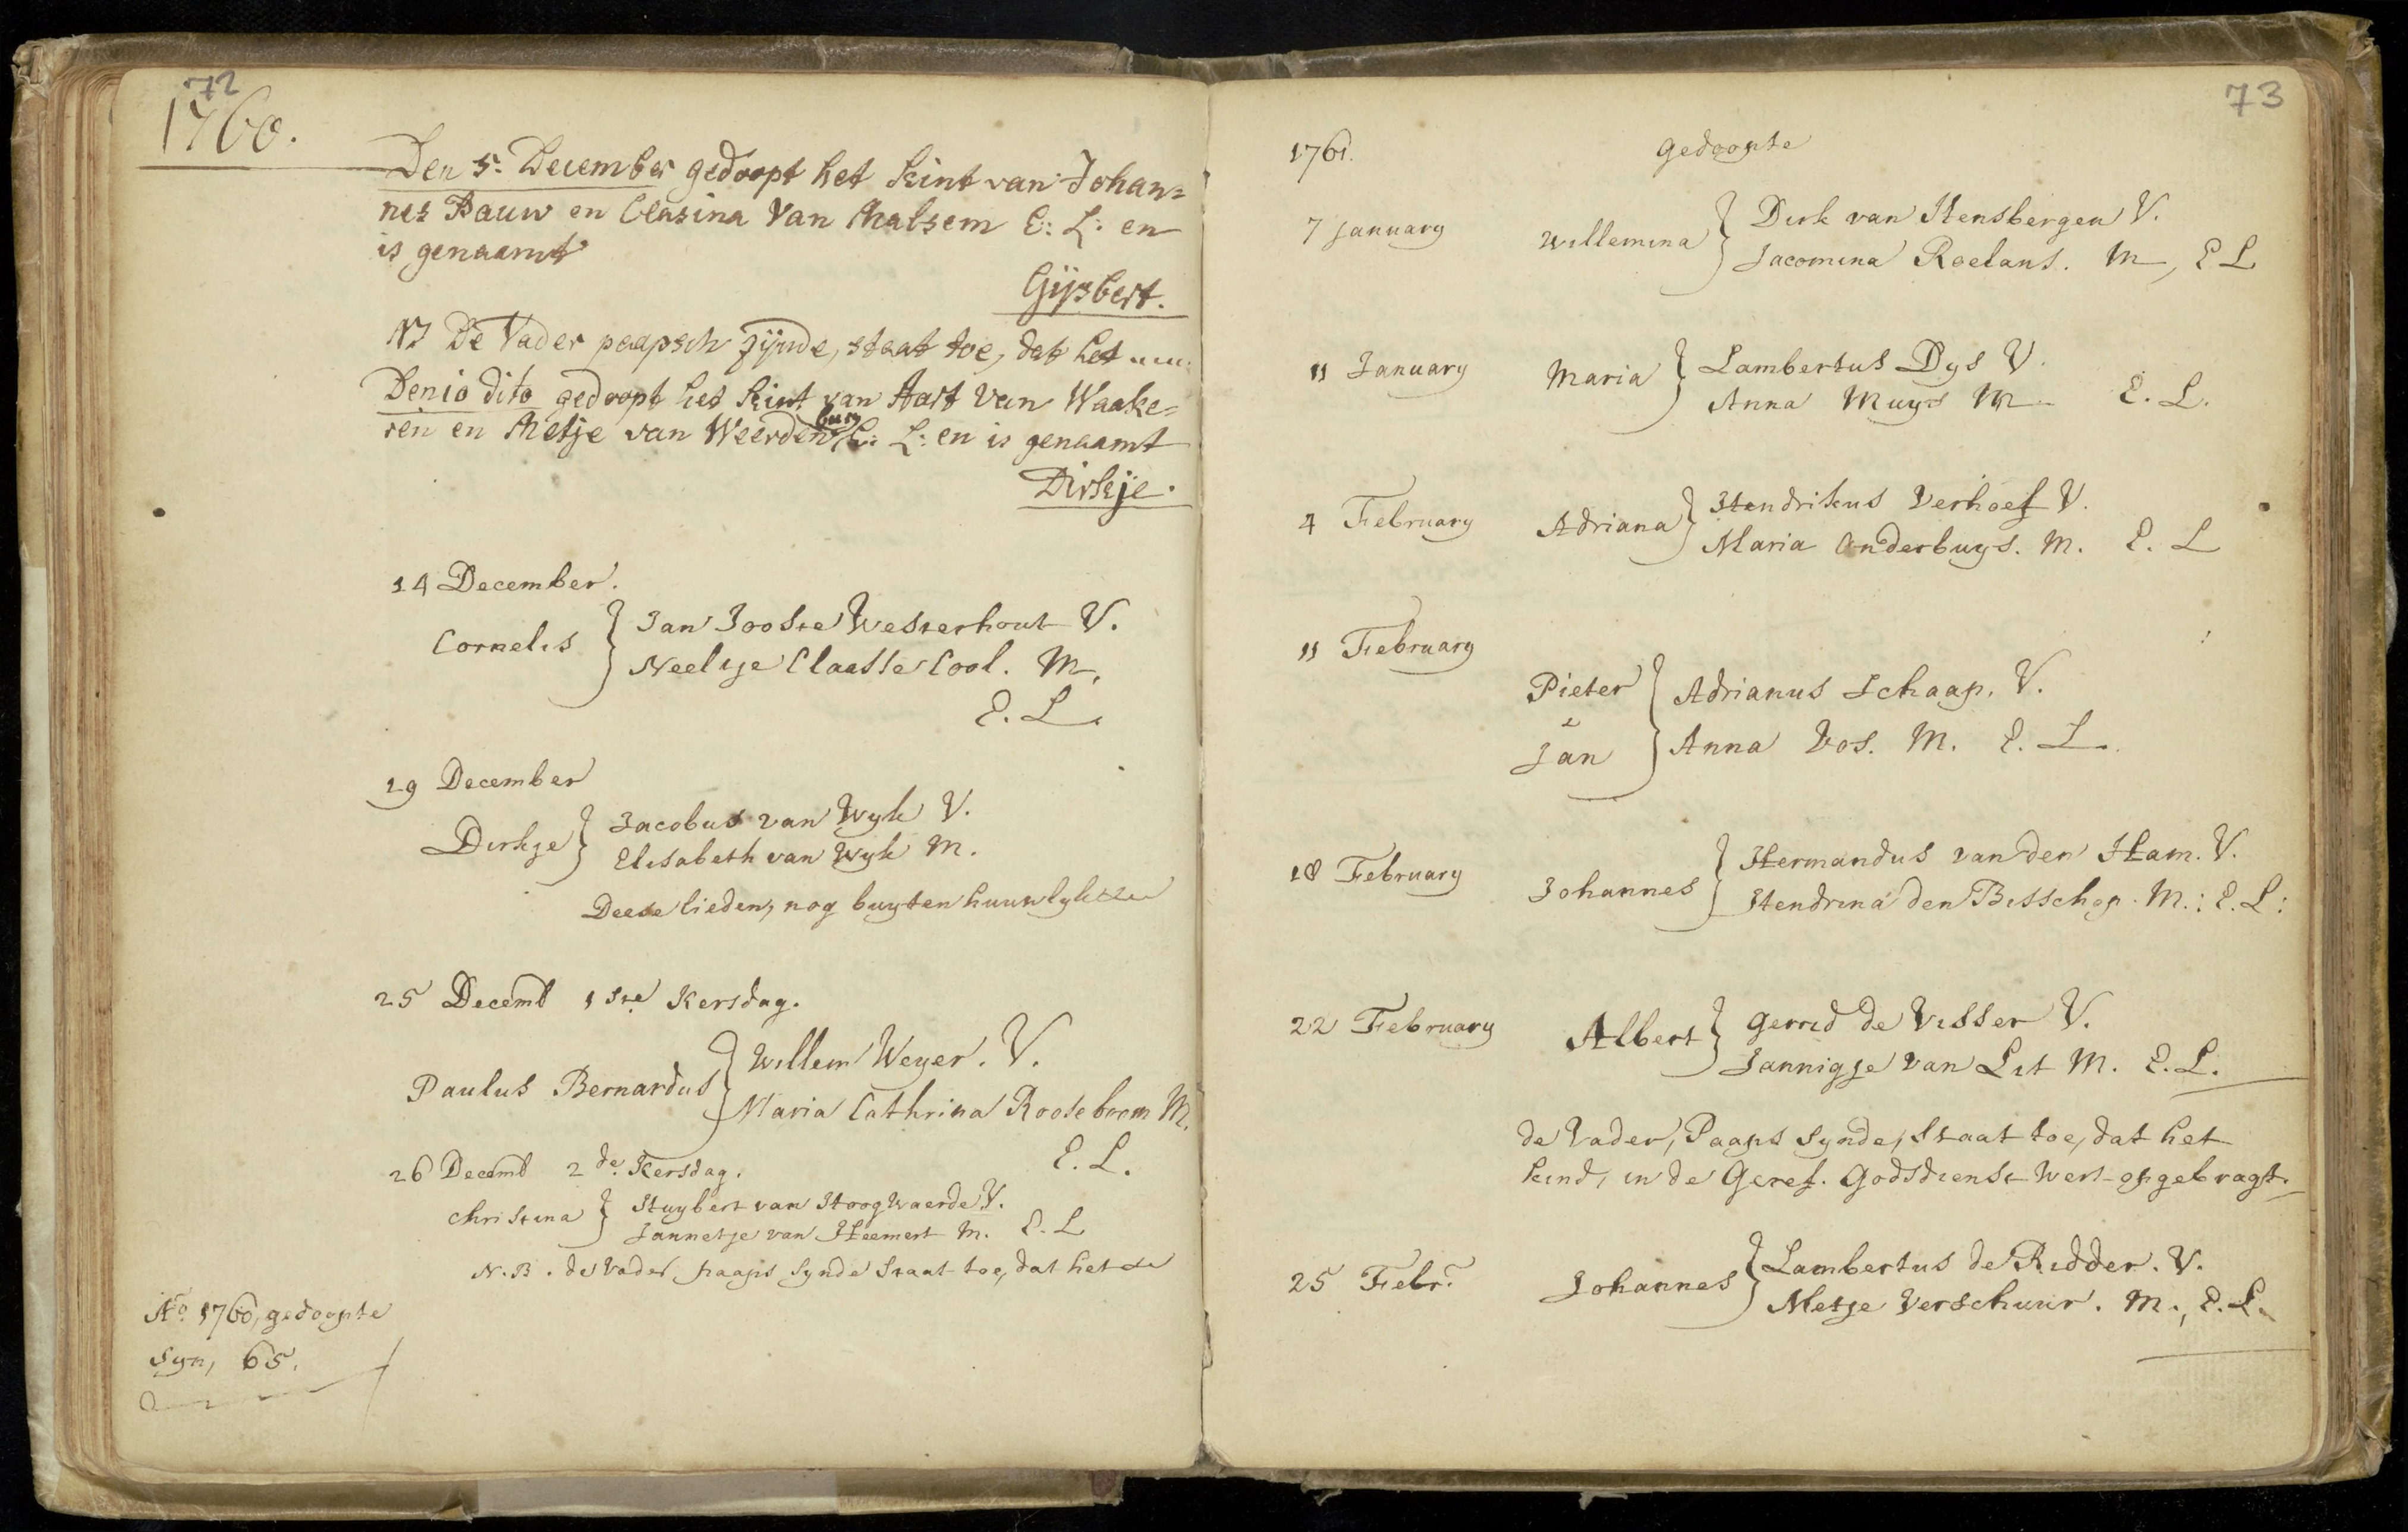 72
1760.
Den 5. December gedoopt het kint van Johan=
nes Pauw en Clasina Van Malsem E: L: en
is genaamt
Gijsbert.
NB De Vader paapsch zijnde, staat toe, dat het
Den 10 dito gedoopt het kint van Aart Van Waake=
ren en Metje van Weerden
burg
E: L: en is genaamt
Dirkje.
14 December.
Cornelis } Jan Jooste Westerhout V.
Neeltje Claasse Cool. M,
E. L.
19 December
Dirkje } Jacobus van Wyk V.
Elisabeth van Wyk M.
Deese lieden, nog buyten huuwlyk &c
25 Decemb 1ste Kersdag.
Paulus Bernardus } Willem Weyer. V.
Maria Cathrina Rooseboom M.
E. L.
26 Decemb 2de Kersdag.
Christina } Huybert van Hoogwaerde V.
Jannetje van Heemert M. E. L
N.B. de Vader paaps synde staat toe, dat het &c
Ao. 1760, gedoopte
syn, 65.
73
1761. gedoopte
7 January Willemina } Dirk van Hensbergen V.
Jacomina Roelans. M, E L
11 January Maria } Lambertus Dys V.
Anna Muys M. E. L.
4 February Adriana } Hendrikus Verhoef V.
Maria Onderbuys. M. E. L
11 February
Pieter } Adrianus Schaap. V.
&
Jan } Anna Vos. M. E. L.
18 February Johannes } Hermandus van den Ham. V.
Hendrina den Bisschop. M.: E. L:
22 February Albert } Gerrid de Visser V.
Jannigje van Lit M. E. L.
de Vader, Paaps synde, staat toe, dat het
kind, in de Geref. Godsdienst wert opgebragt.
25 Febr. Johannes } Lambertus de Ridder. V.
Metje Verschuur. M., E. L.